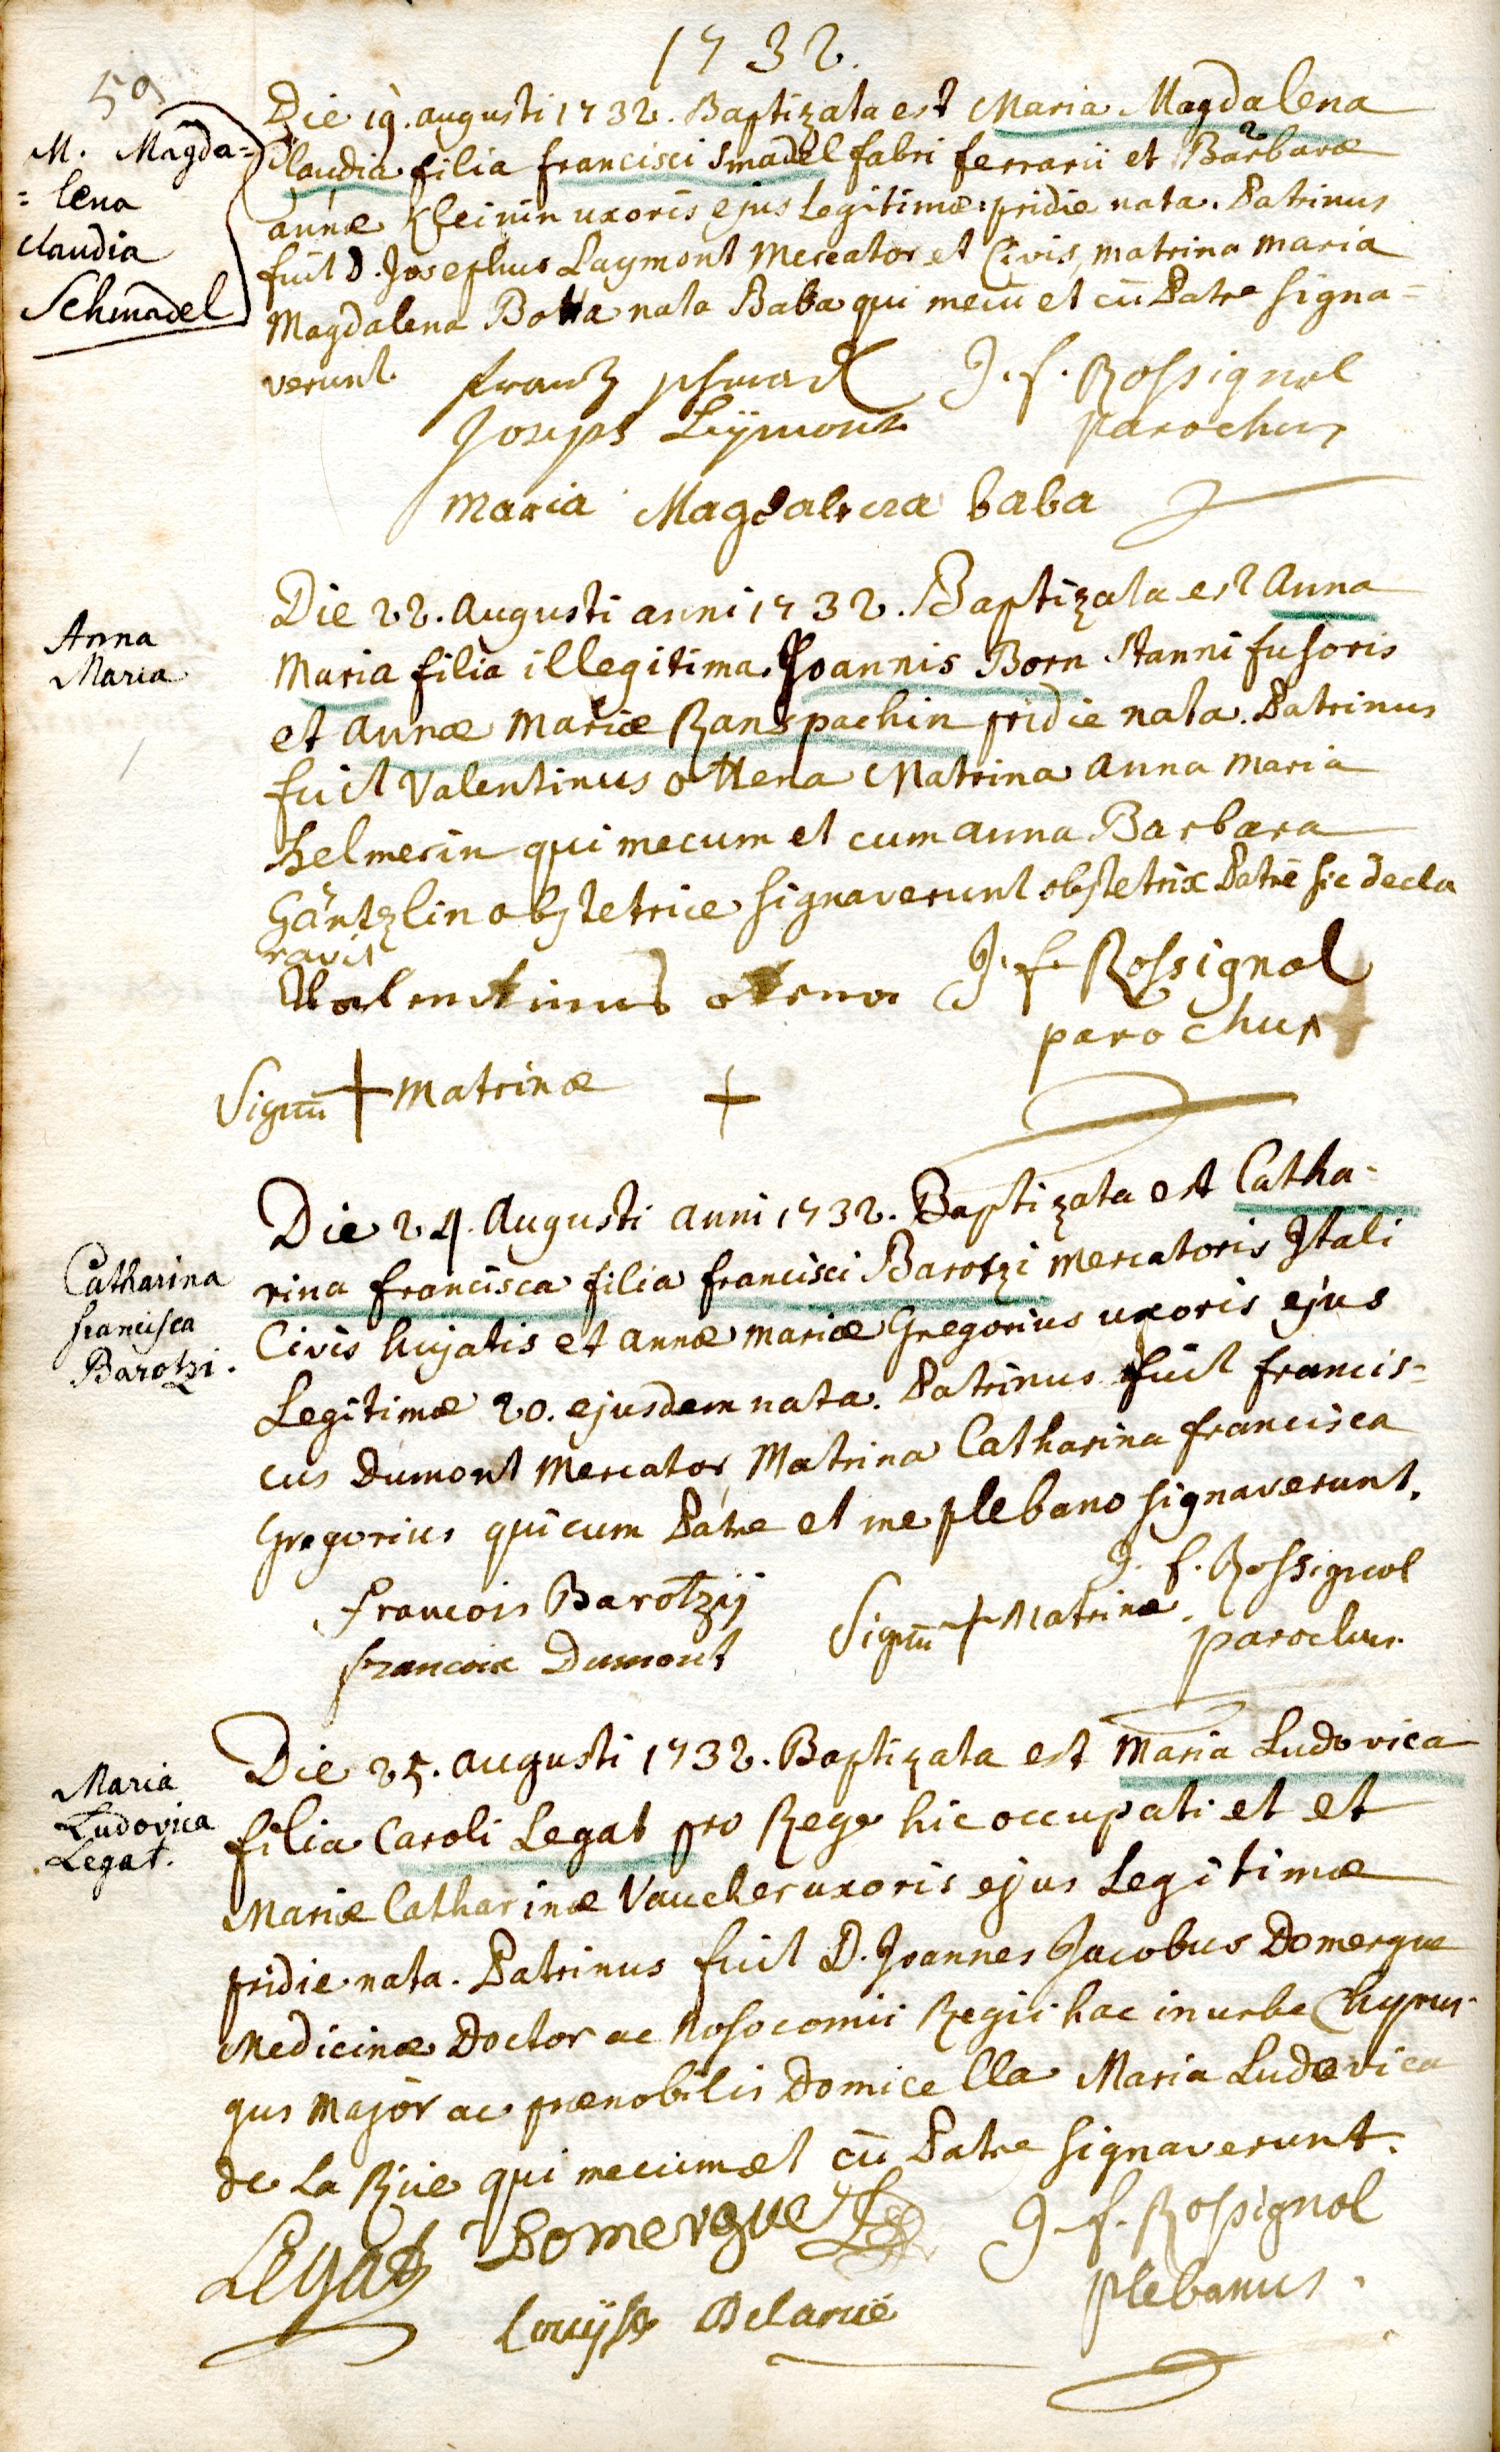 1732.
59
M. Magda=
= lena
Claudia
Schmadel
Die 19. augusti 1732. Baptizata est Maria Magdalena
Claudia filia francisci Smadel fabri ferrarii et Barbaræ
annæ Kleinin uxoris ejus Legitimæ pridie nata. Patrinus
fuit D. Josephus Laymont Mercator et Civis, matrina maria
Magdalena Botta nata Baba qui mecū et cū Patre signa=
verunt.
frantz schmadl J. f. Rossignol
Joseph Leymont parochus
Maria Magdalena baba
Anna
Maria
Die 22. Augusti anni 1732. Baptizata est Anna
Maria filia illegitima Joannis Born stanni fusoris
et annæ Mariæ Ranspachin pridie nata. Patrinus
fuit Valentinus ottena Matrina Anna Maria
helmerin qui mecum et cum anna Barbara
Gäntzlin obstetrice signaverunt obstetrix Patrē sic decla
ravit
Valentinus ottena J. f. Rossignol
parochus
Signū + Matrinæ +
Catharina
francisca
Barotzi.
Die 24. Augusti anni 1732. Baptizata est Catha=
rina francisca filia francisci Barotzi mercatoris Itali
Civis hujatis et annæ mariæ Gregorius uxoris ejus
Legitimæ 20. ejusdem nata. Patrinus fuit francis=
cus Dumont Mercator, Matrina Catharina francisca
Gregorius qui cum Patre et me plebano signaverunt.
francois Barotzij J. f. Rossignol
francoix Dumont Signū + Matrinæ parochus.
Maria
Ludovica
Legat.
Die 25. augusti 1732. Baptizata est Maria Ludovica
filia Caroli Legat pro Rege hic occupati et et
Mariæ Catharinæ Vaucher uxoris ejus Legitimæ
pridie nata. Patrinus fuit D. Joannes Jacobus Domergue
Medicinæ Doctor ac Nosocomii Regii hac in urbe Chyrur-
gus Major ac prænobilis Domicella Maria Ludovica
de La Rüe qui mecum et cū Patre signaverunt.
Legat Domergue J. f. Rossignol
Louyse Delarue plebanus.